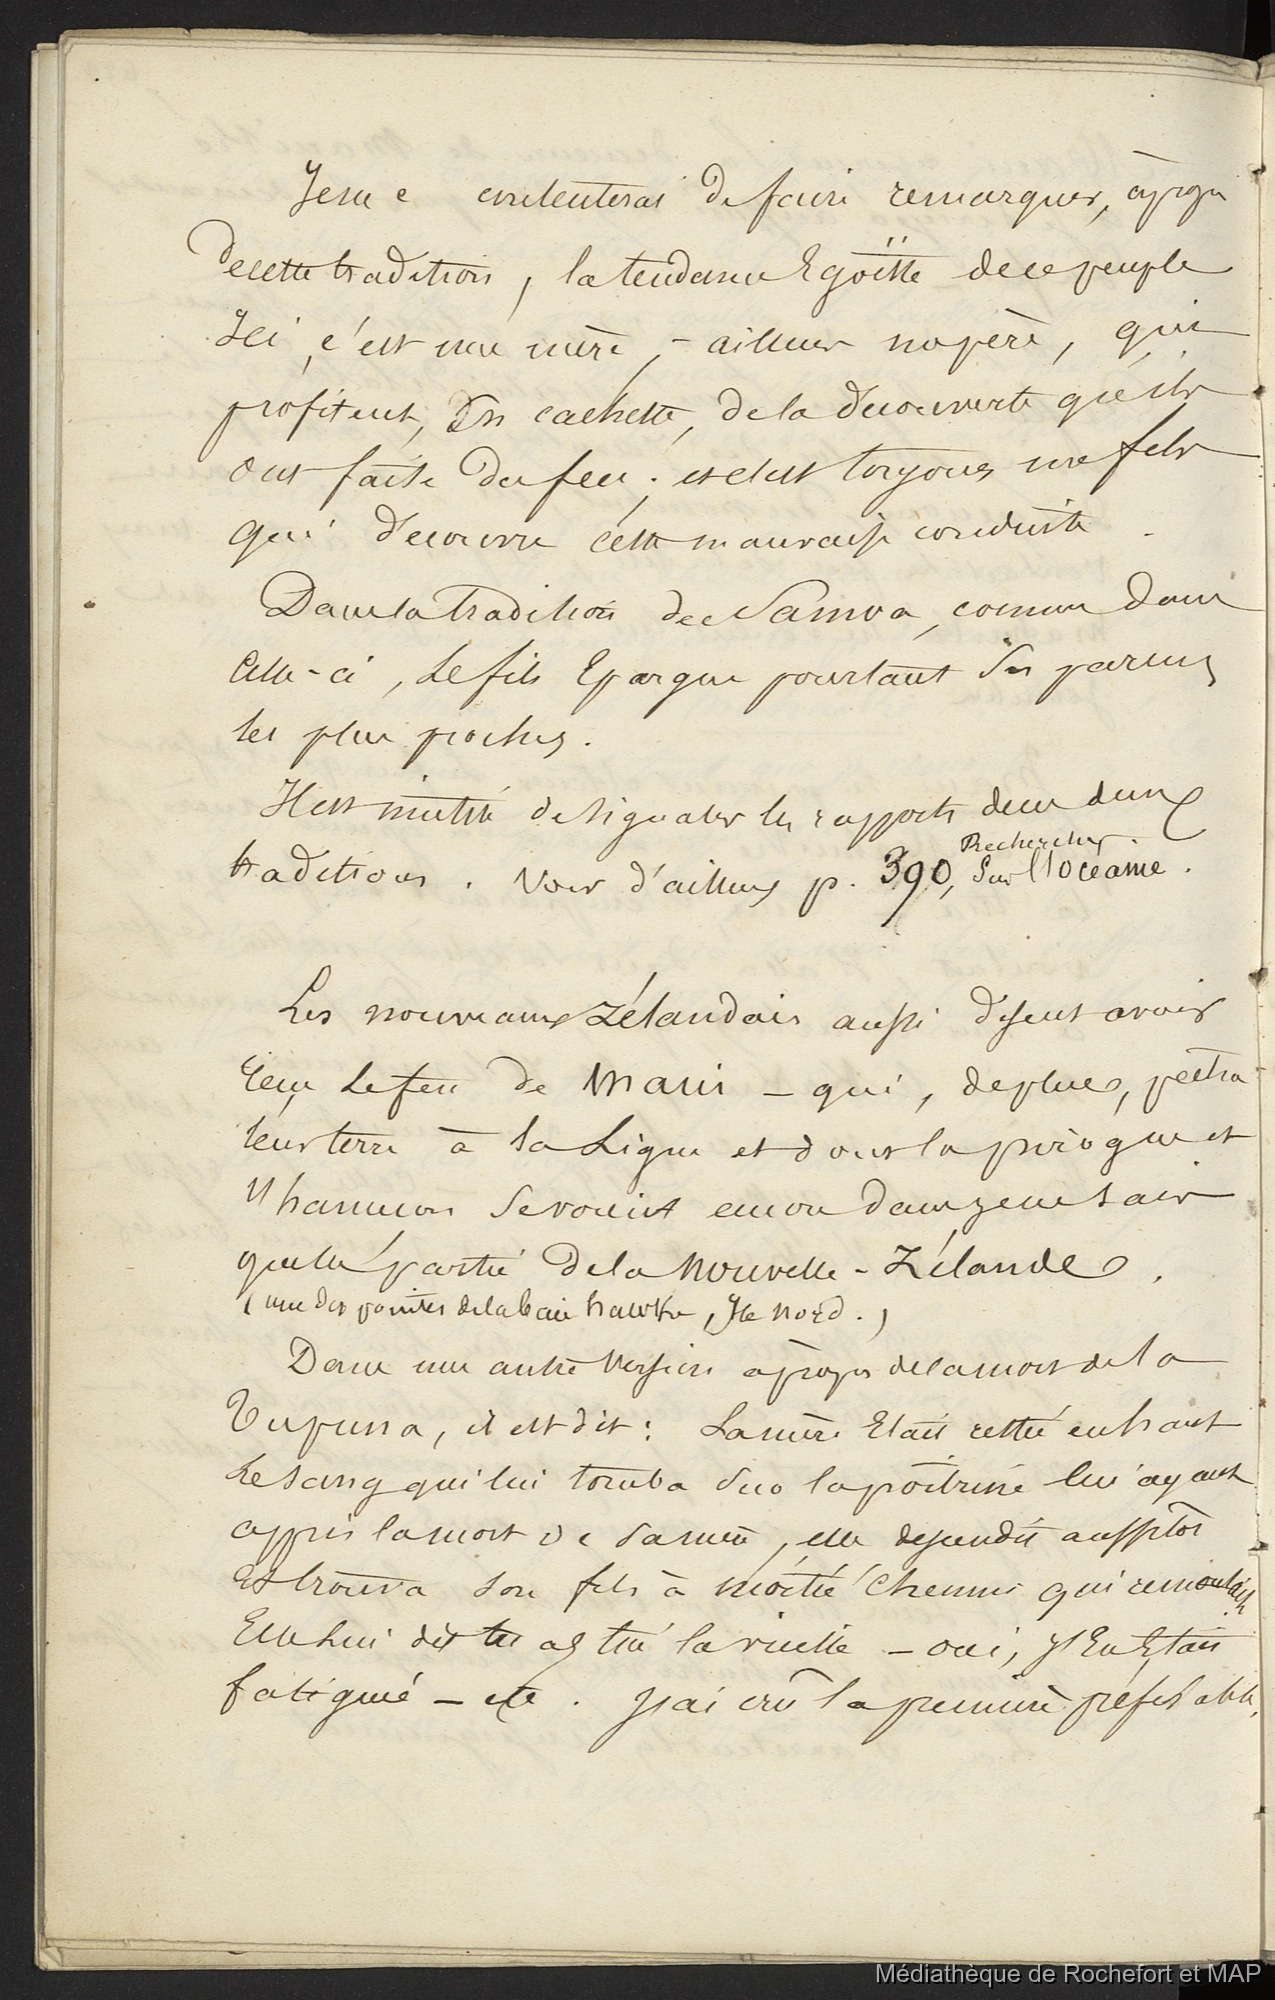 Je me contenterai de faire remarquer, à propos
de cette tradition, la tendance Egoïste de ce peuple
Ici, c'est une mère, - ailleurs un père, qui
profitent, En cachette, de la découverte qu'ils
ont faite du feu ; et c'est toujours un fils
qui découvre cette mauvaise conduite.
Dans la tradition de Samoa, comme dans
Celle-ci, le fils Epargne pourtant ses parens
les plus proches.
Il est inutile de signaler les rapports de ces deux
traditions. Voir d'ailleurs p. 390, Recherches sur l'Océanie.
Les nouveaux Zélandais aussi disent avoir
reçu le feu de Maui - qui, de plus, pêcha
leur terre à la Ligne et dont la pirogue et
l'hameçon se voient encore dans je ne sais
quelle partie de la Nouvelle-Zélande.
(une des pointes de la baie hawke, Ile Nord.)
Dans une autre Version à propos de la mort de la
Tupuna, il est dit : La mère Etait restée en haut
Le sang qui lui tomba sur la poitrine lui ayant
appris la mort de sa mère, elle descendit aussitôt
Et trouva son fils à moitié chemin qui remontait
Elle lui dit tu as tué la vieille - oui, j'En Etais
fatigué - etc. J'ai crû la première préférable.
Médiathèque de Rochefort et MAP